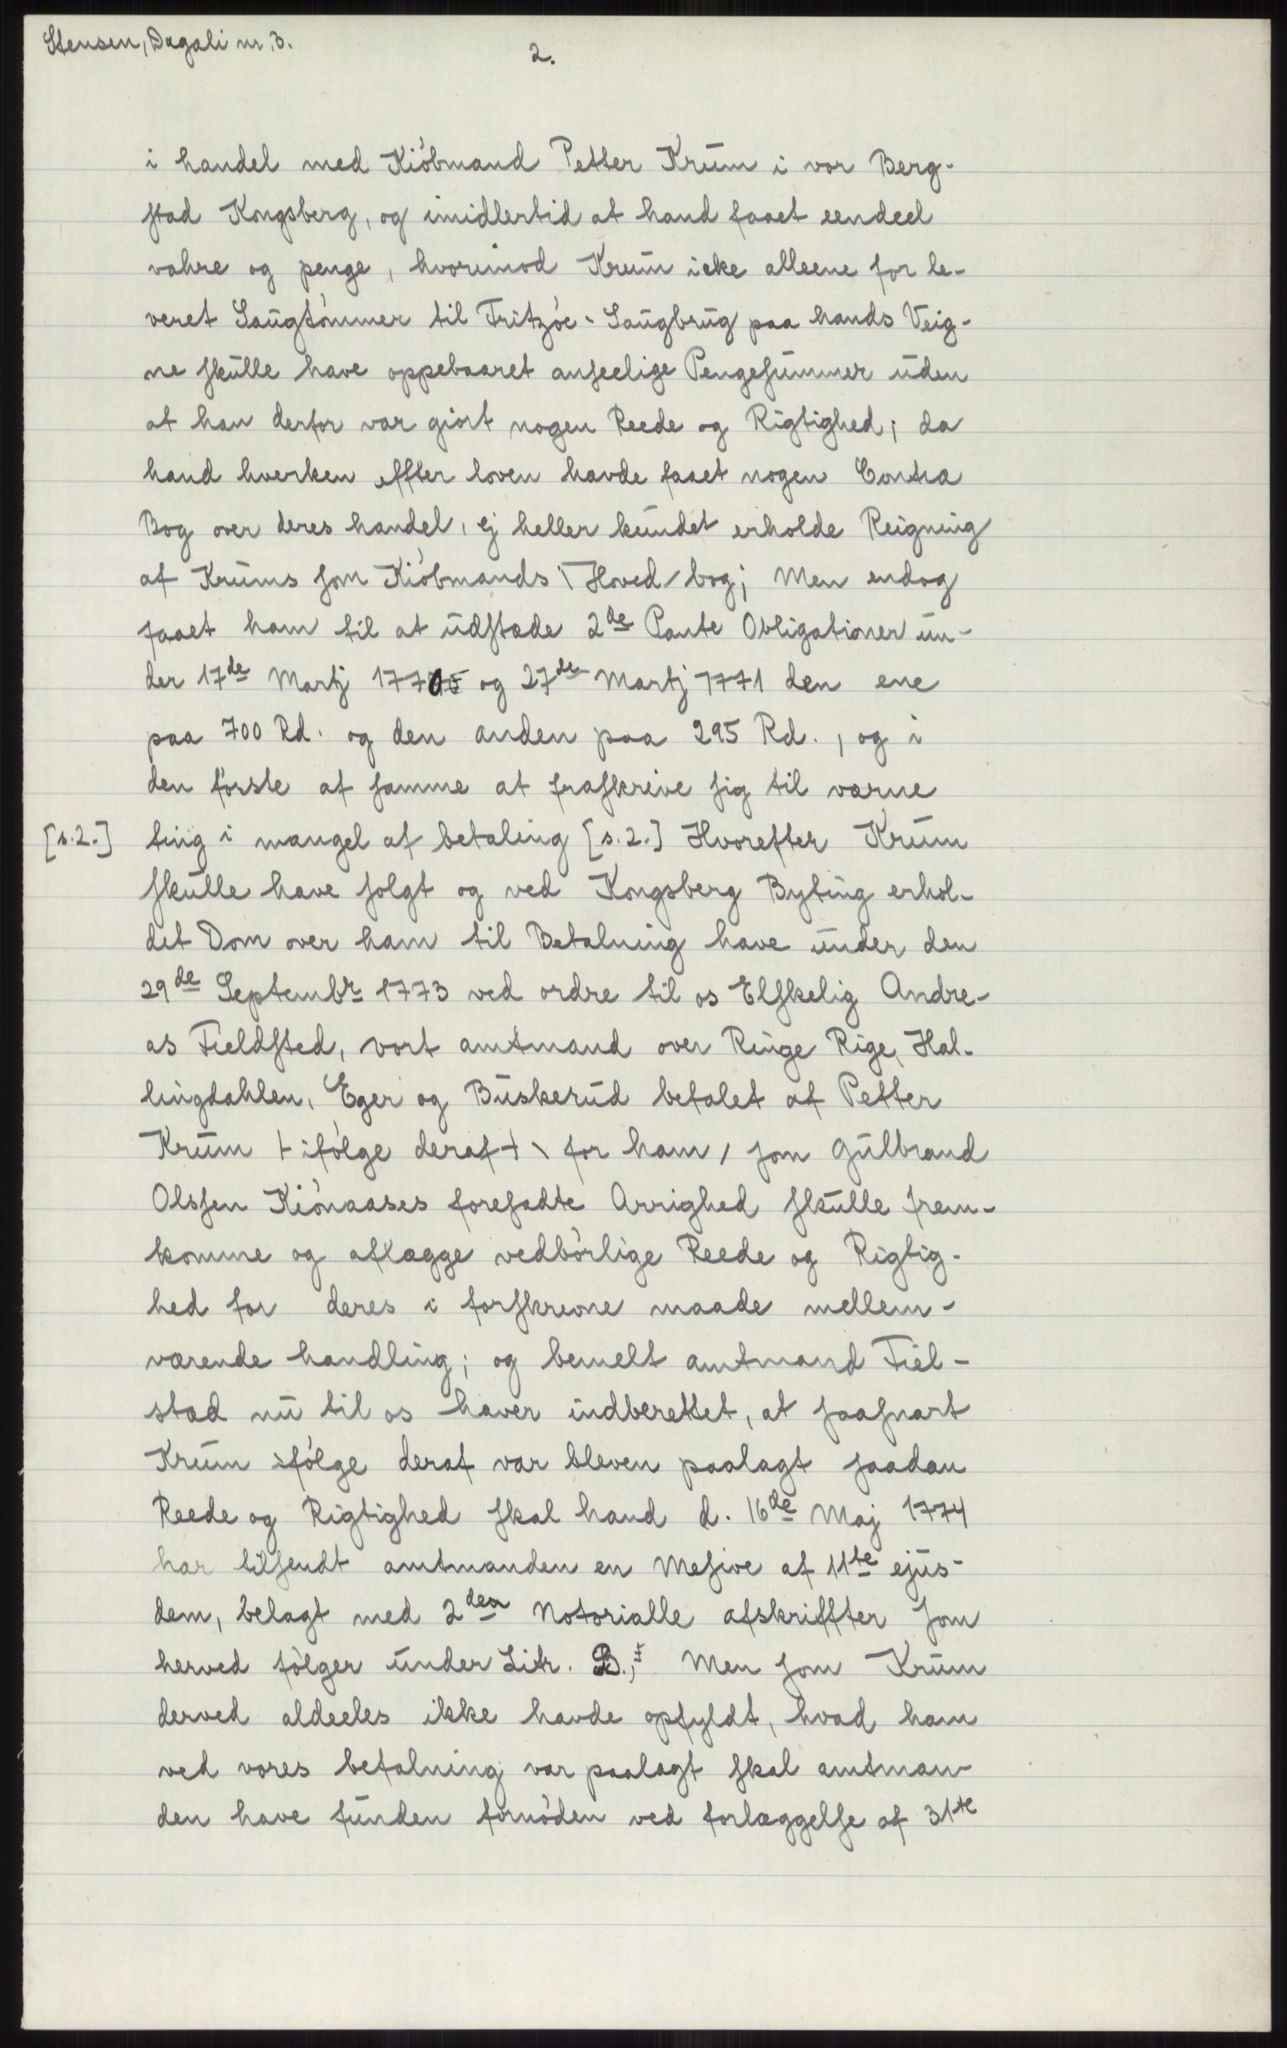 Stensen, Dagali nr. 3.
2.
i handel med Kiöbmand Petter Krum i vor Berg-
stad Kongsberg, og imidlertid at hand faaet eendeel
vahre og penge, hvorimod Krum icke alleene for le-
veret Saugtömmer til Tritzöe - Saugbrug paa hands Veig-
ne skulle have oppebaaret anseelige Pengesummer uden
at han derfor var giort nogen Reede og Rigtighed; da
hand hverken effter loven havde faaet nogen Contra
Bog over deres handel, ej heller kundet erholde Reigning
af Krums som Kiöbmands \ Hoved / bog; Men endog
faaet ham til at udstæde 2de Pante Obligationer un-
der 17de Martj 1770 og 27de Martj 1771 den ene
paa 700 Rd. og den anden paa 295 Rd., og i
den förste af samme at fraskrive sig til værne
[s.2.] ting i mangel af betaling [s.2.] Hvorefter Krum
skulle have solgt og ved Kongsberg Byting erhol-
det Dom over ham til Betalning have under den
29de Septembr 1773 ved ordre til os Elskelig Andre-
as Fieldsted, vort amtmand over Ringe Rige, Hal-
lingdahlen, Eger og Buskerud befalet at Petter
Krum + ifölge deraf + \ for ham / som Gulbrand
Olssen Kiönaases foresadte Övrighed skulle frem-
komme og aflægge vedbörlige Reede og Rigtig-
hed for deres i forskrevne maade mellem-
værende handling; og bemelt amtmand Fiel-
stad nu til os haver indberettet, at saasnart
Krum ifölge deraf var bleven paalagt saadan
Reede og Rigtighed skal hand d. 16de Maj 1774
har tilsendt amtmanden en Mesive af 11te ejus-
dem, belagt med 2den Notorialle afskriffter som
herved fölger under Litr. B., Men som Krum
derved aldeeles ikke havde opfyldt, hvad ham
ved vores befalning var paalagt skal amtman-
den have funden fornöden ved forlæggelse af 31te